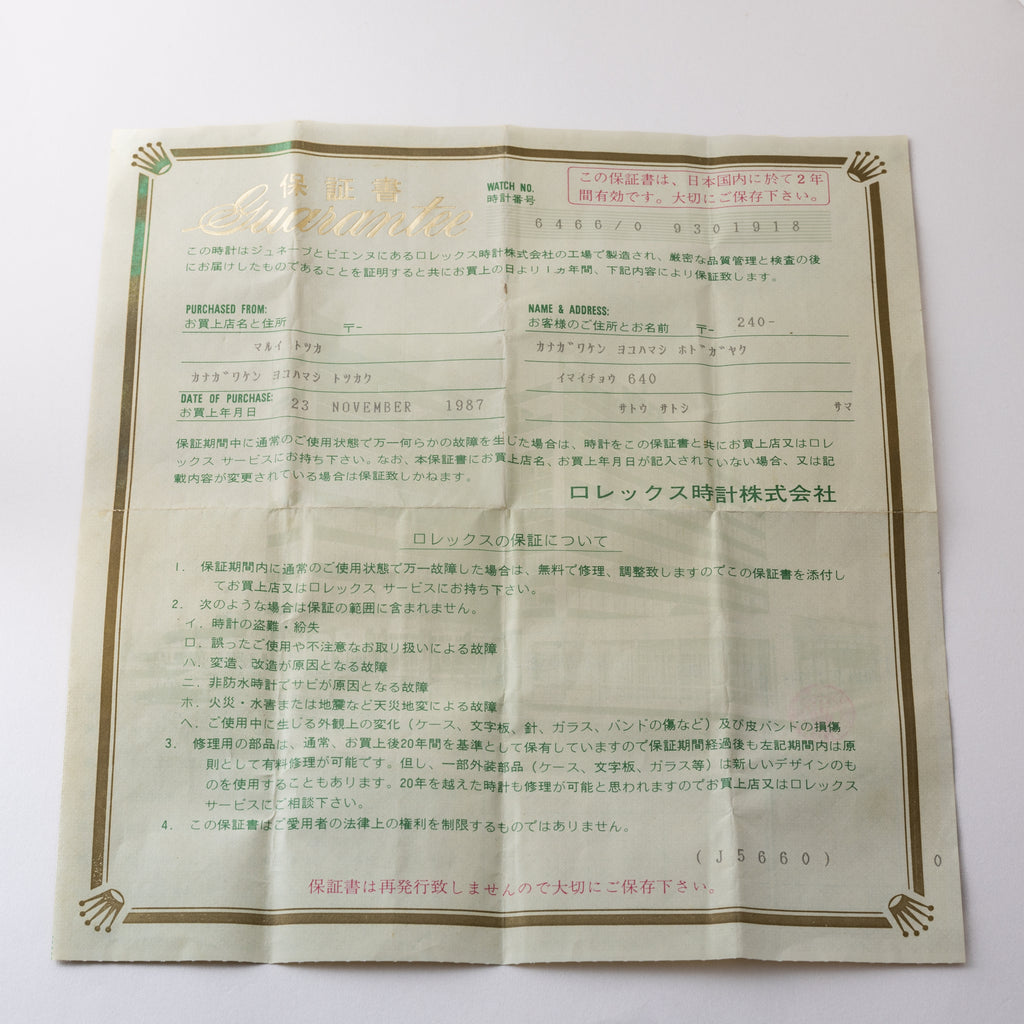 保証書
Guarantee
WATCH NO.
時計番号
この保証書は、日本国内に於て2年
間有効です。大切にご保存下さい。
6466/0 9301918
この時計はジュネーブとビエンヌにあるロレックス時計株式会社の工場で製造され、厳密な品質管理と検査の後
にお届けしたものであることを証明すると共にお買上の日より1ヵ年間、下記内容により保証致します。
PURCHASED FROM:
お買上店名と住所 〒-
マルイ トツカ
カナガワケン ヨコハマシ トツカク
DATE OF PURCHASE:
お買上年月日 23 NOVEMBER 1987
NAME & ADDRESS:
お客様のご住所とお名前 〒- 240-
カナガワケン ヨコハマシ ホドガヤク
イマイチョウ 640
サトウ サトシ サマ
保証期間中に通常のご使用状態で万一何らかの故障を生じた場合は、時計をこの保証書と共にお買上店又はロレ
ックス サービスにお持ち下さい。なお、本保証書にお買上店名、お買上年月日が記入されていない場合、又は記
載内容が変更されている場合は保証致しかねます。
ロレックス時計株式会社
ロレックスの保証について
1. 保証期間内に通常のご使用状態で万一故障した場合は、無料で修理、調整致しますのでこの保証書を添付し
てお買上店又はロレックス サービスにお持ち下さい。
2. 次のような場合は保証の範囲に含まれません。
イ. 時計の盗難・紛失
ロ. 誤ったご使用や不注意なお取り扱いによる故障
ハ. 変造、改造が原因となる故障
ニ. 非防水時計でサビが原因となる故障
ホ. 火災・水害または地震など天災地変による故障
ヘ. ご使用中に生じる外観上の変化（ケース、文字板、針、ガラス、バンドの傷など）及び皮バンドの損傷
3. 修理用の部品は、通常、お買上後20年間を基準として保有していますので保証期間経過後も左記期間内は原
則として有料修理が可能です。但し、一部外装部品（ケース、文字板、ガラス等）は新しいデザインのも
のを使用することもあります。20年を越えた時計も修理が可能と思われますのでお買上店又はロレックス
サービスにご相談下さい。
4. この保証書はご愛用者の法律上の権利を制限するものではありません。
(J5660) 0
保証書は再発行致しませんので大切にご保存下さい。